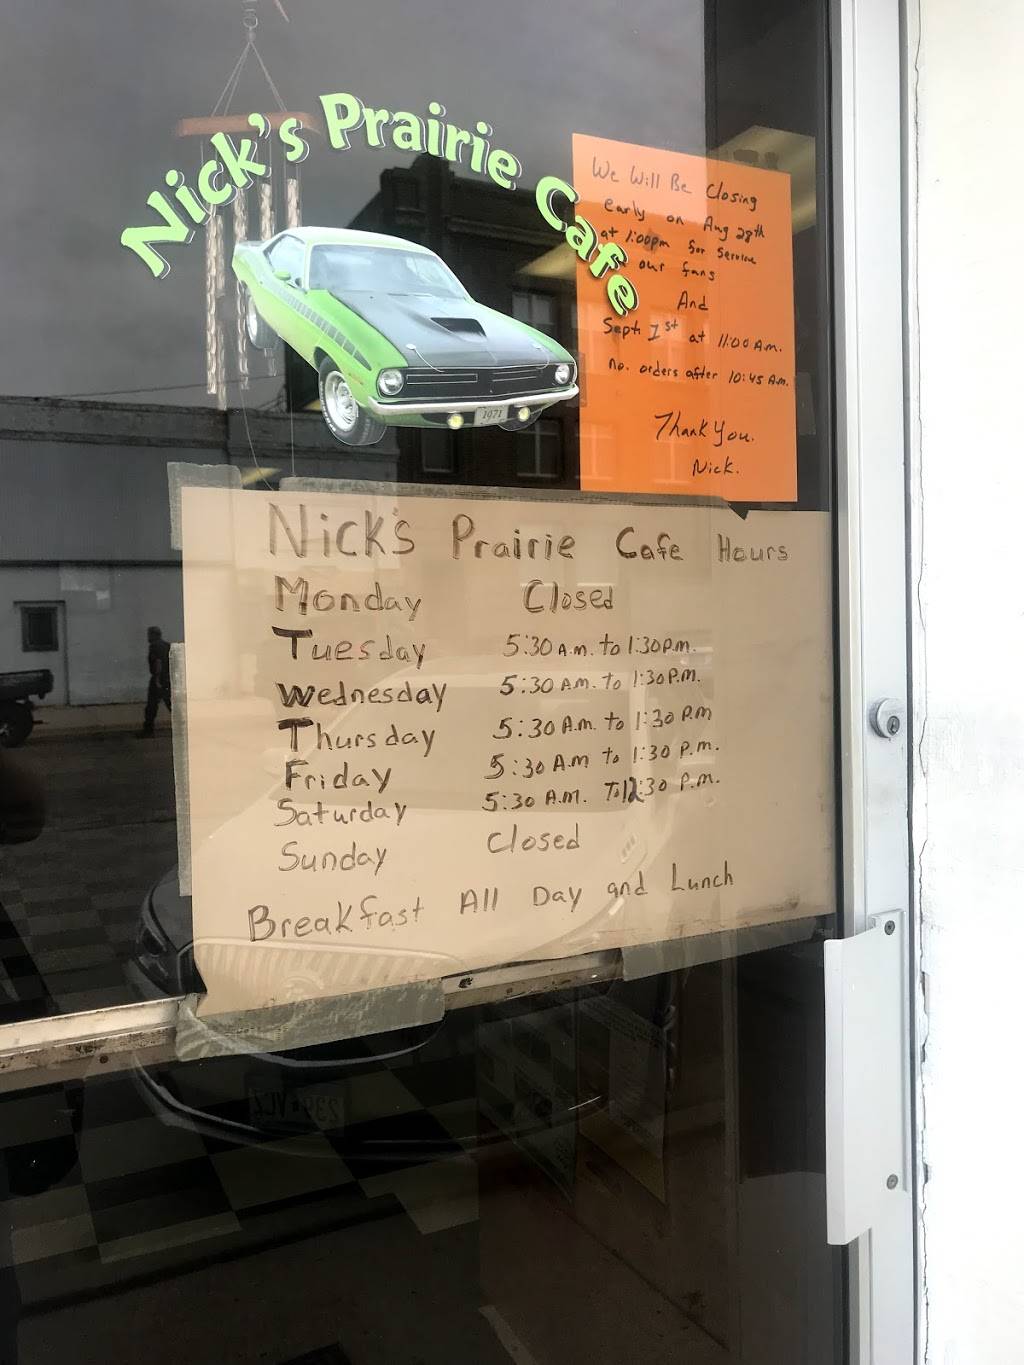 Nick's Prairie Cafe
1971
We Will Be Closing
early on Aug 28th
at 1:00pm for Service
our fans
And
Sept 1st at 11:00 A.m.
no. orders after 10:45 A.m.
Thank You.
Nick.
Nick's Prairie Cafe Hours
Monday Closed
Tuesday 5:30 A.m. to 1:30 P.m.
Wednesday 5:30 A.m. to 1:30 P.m.
Thursday 5:30 A.m. to 1:30 P.m
Friday 5:30 A.m to 1:30 P.m.
Saturday 5:30 A.M. To 12:30 P.m.
Sunday Closed
Breakfast All Day and Lunch